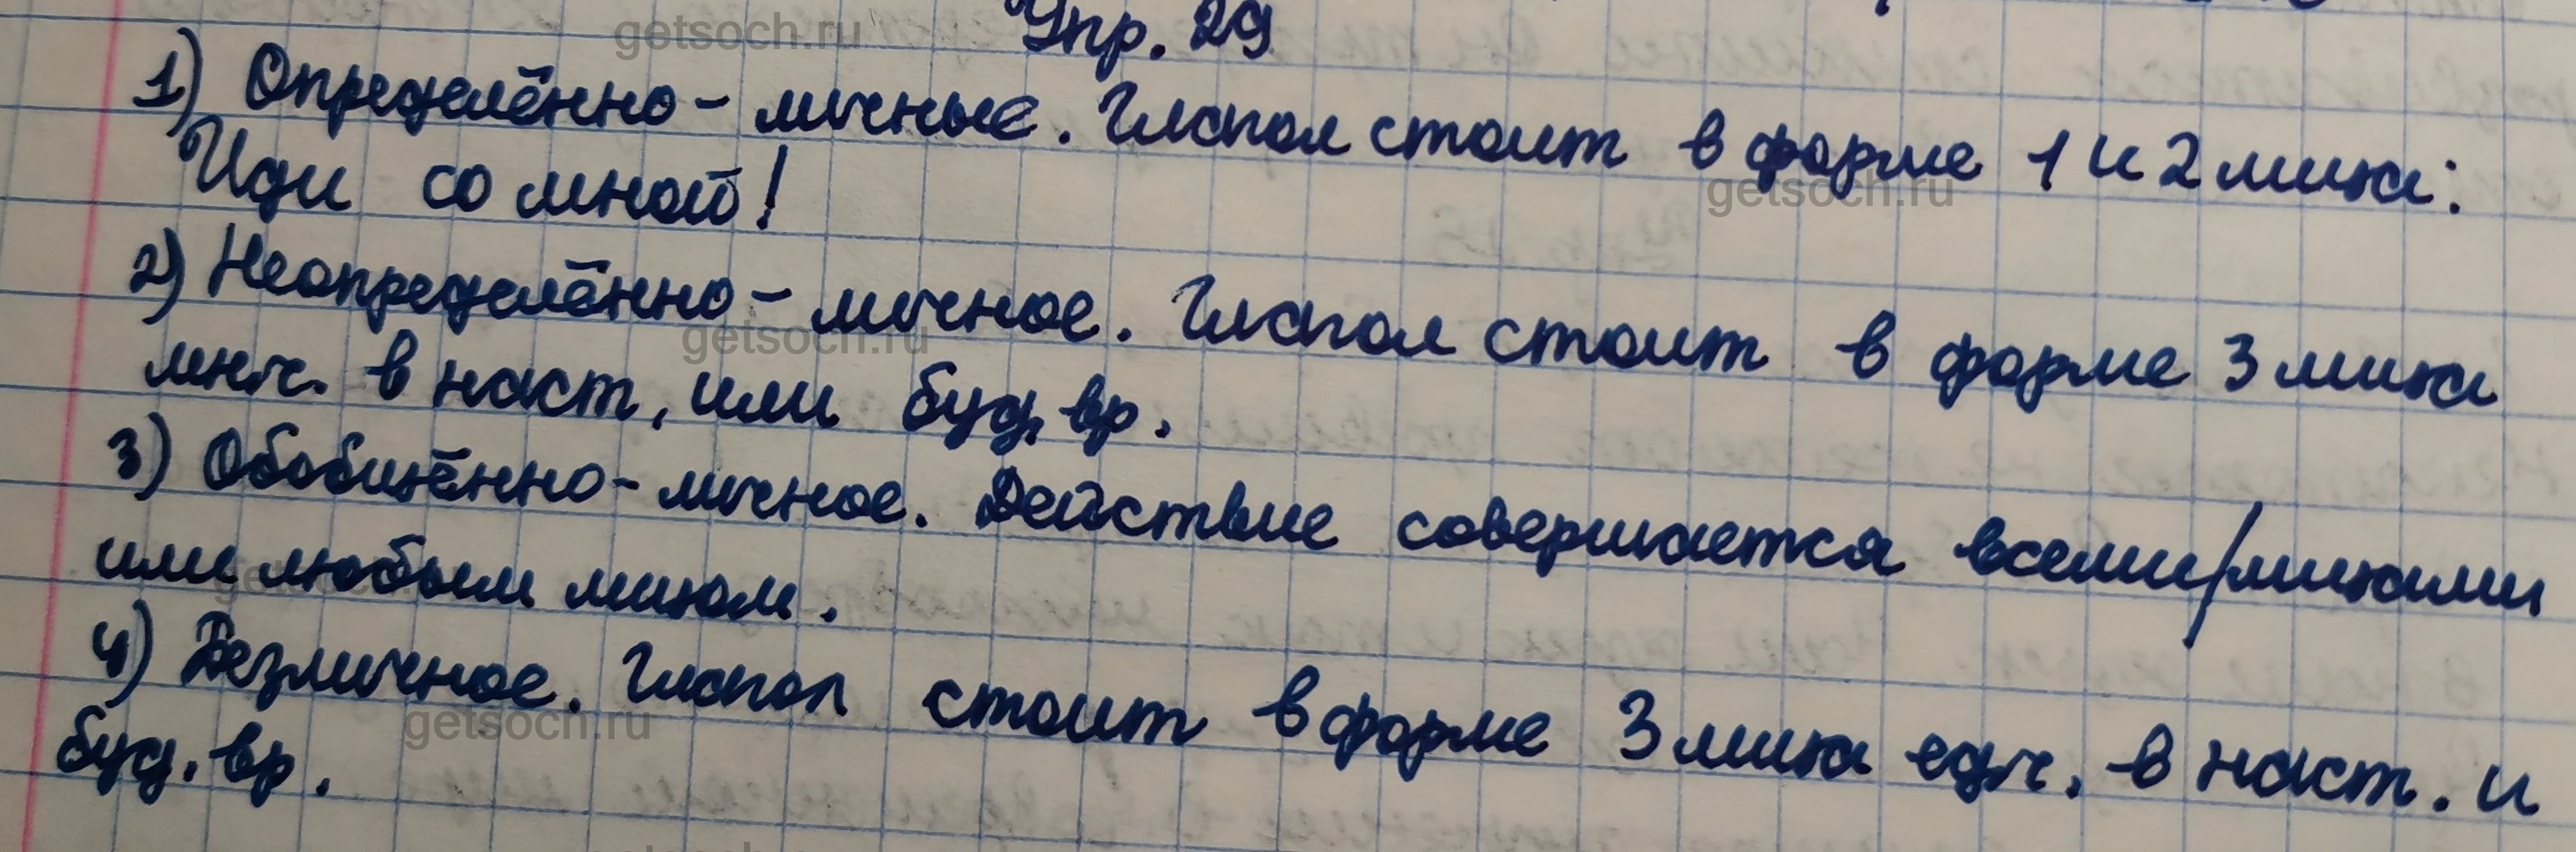 Упр. 29
1) Определённо - личные. Глагол стоит в форме 1 и 2 лица:
Иди со мной!
2) Неопределённо - личное. Глагол стоит в форме 3 лица
мн.ч. в наст, или буд. вр.
3) Обобщённо - личное. Действие совершается всеми/лицами
или любым лицом.
4) Безличное. Глагол стоит в форме 3 лица ед.ч. в наст. и
буд. вр.
getsoch.ru
getsoch.ru
getsoch.ru
getsoch.ru
getsoch.ru